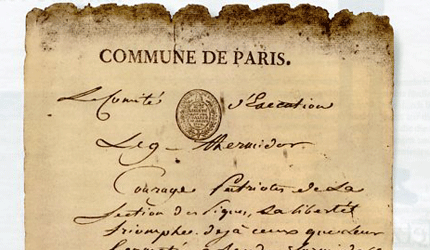 COMMUNE DE PARIS.
Le Comité d'Execution
Le 9 thermidor
Courage Patriotes de La
Section des Piques, La liberté
triomphe deja ceux que leur